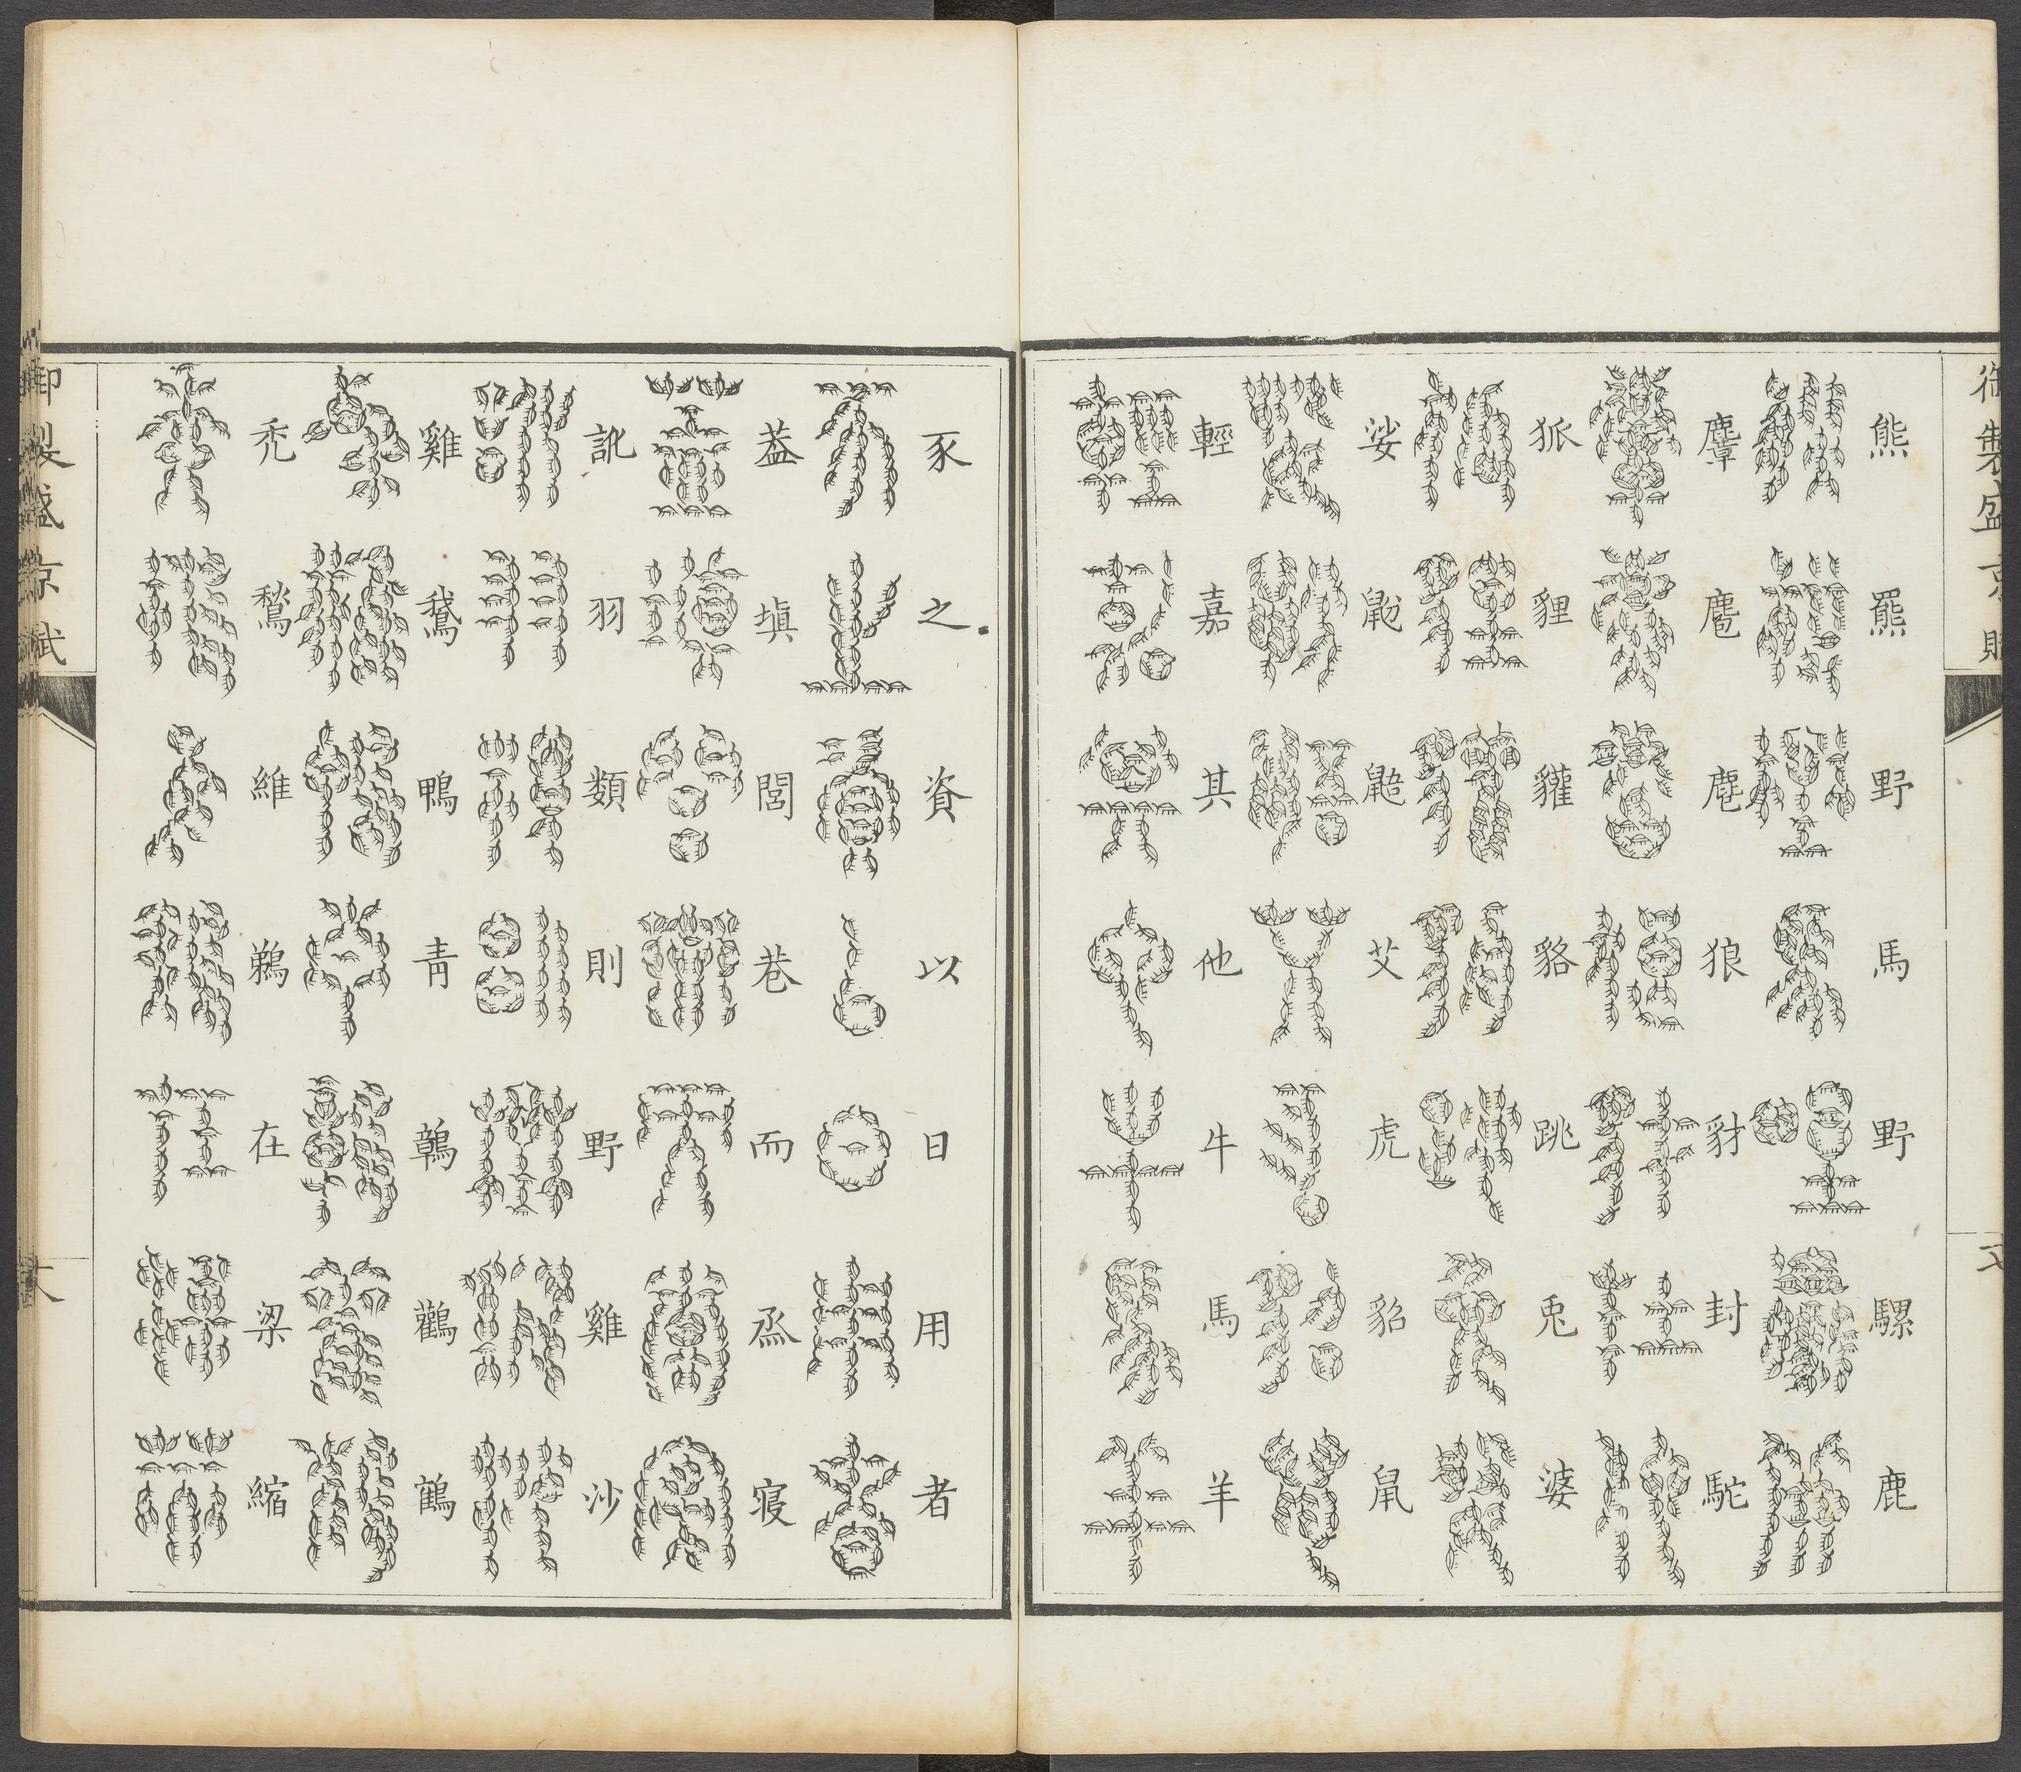 御製盛京賦
熊羆野馬野騾鹿
麞麅狼豺封駝
狐貍貛貉跳兎婆
娑鼢鼯艾虎貂鼠
輕嘉其他牛馬羊
豕之資以日用者
蓋塡閭巷而烝寢
訛羽類則野雞沙
雞鵞鴨青鶉鸛鶴
禿鶖維鵜在梁縮
御製盛京賦